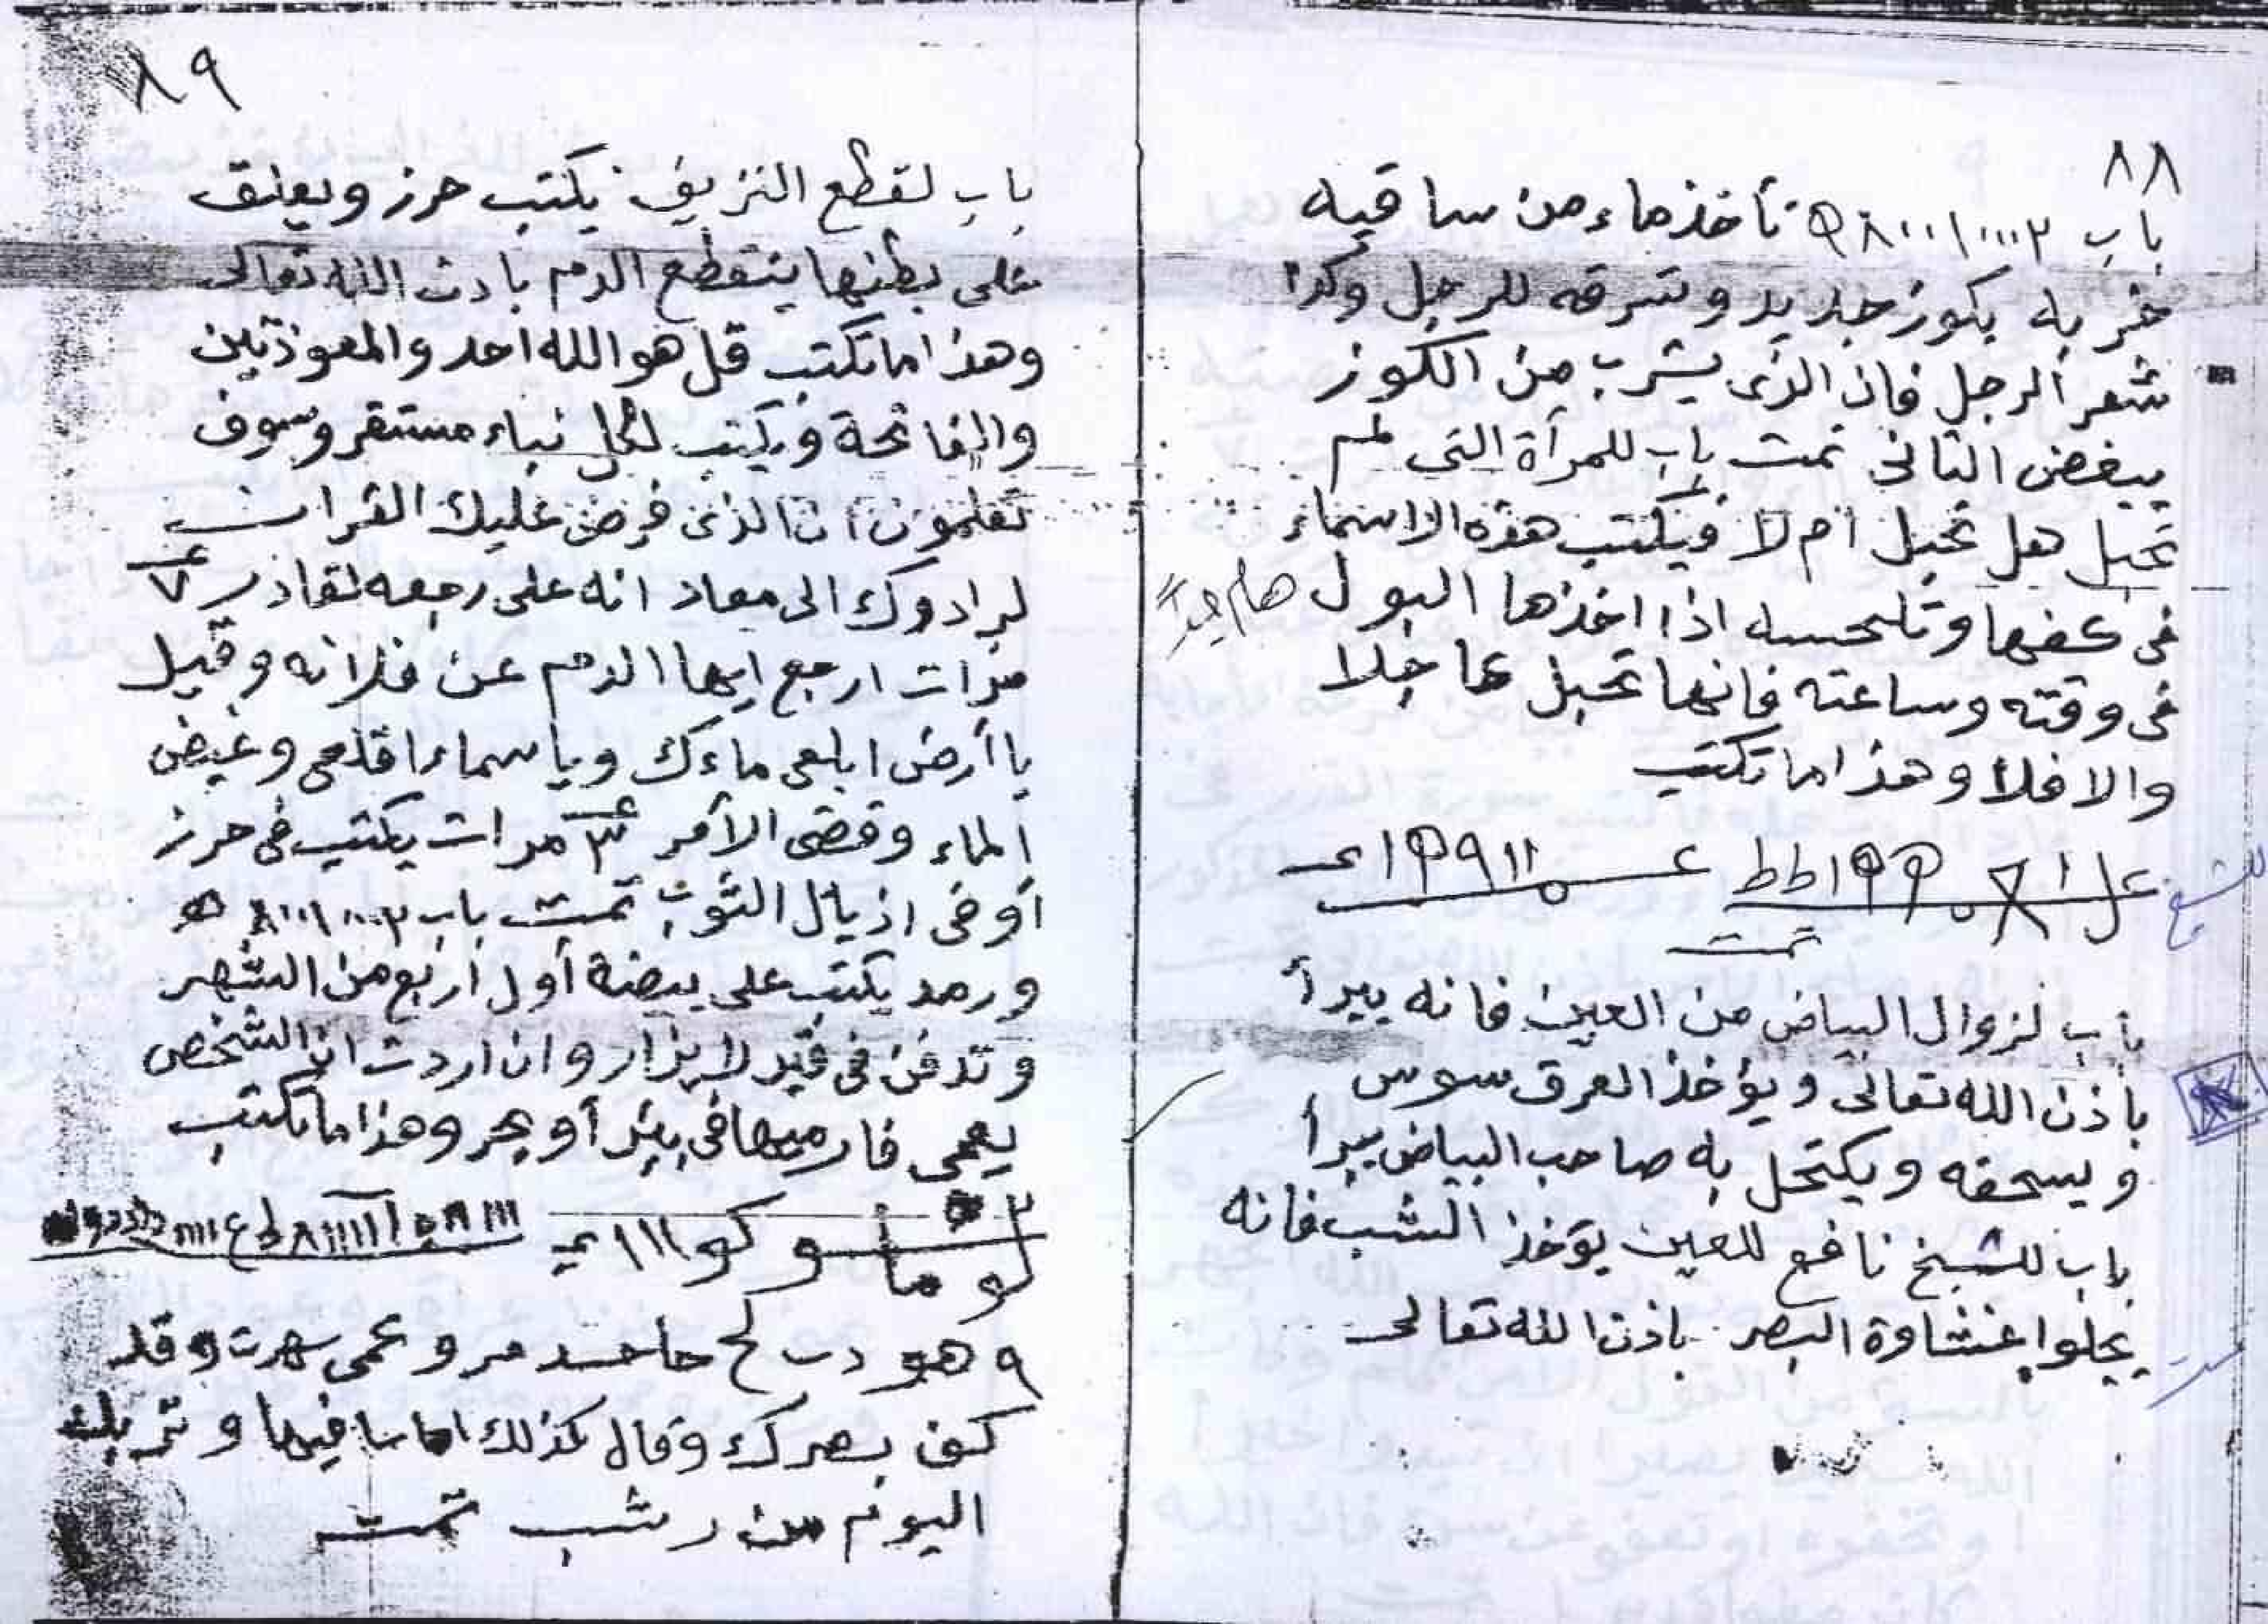 ٨٨
باب ٨٠٠٠١٠٠٠٣ تأخذ ماء من ساقيه
خربه بكوز جديد وتسرقه للرجل وكذا
شعر الرجل فان الذى يشرب من الكوز
يبغض الثانى تمت باب للمرأة التى لم
تحبل هل تحبل ام لا ويكتب هذه الاسماء
فى كفها وتلحسه اذا اخذها البول هام جداً
فى وقته وساعته فانها تحبل عاجلا
والا فلا وهذا ما تكتب
تمت
باب لزوال البياض من العين فانه يبرأ
بأذن الله تعالى ويؤخذ العرق سوس
ويسحقه ويكتحل به صاحب البياض يبرأ
باب للشيخ نافع للعين يؤخذ الشب فانه
يجلوا غشاوة البصر باذن الله تعالى
٨٩
باب لقطع النزيف يكتب حرز ويعلق
على بطنها ينقطع الدم باذن الله تعالى
وهذا ما تكتب قل هو الله احد والمعوذتين
والفاتحة ويكتب لكل نباء مستقر وسوف
تعلمون ان الذى فرض عليك القران
لرادوك الى معاد انه على رجعه لقادر ٧
مرات ارجع ايها الدم عن فلانه وقيل
يا أرض ابلعى ماءك ويا سماء اقلعى وغيض
الماء وقضى الأمر ٣ مرات يكتب فى حرز
أو فى اذيال الثوب تمت باب ٨٠٠١٠٠٠٣
ورمد يكتب على بيضة أول أربع من الشهر
وتدفن فى قبر لا يزار وان اردت ان الشخص
يعمى فارميها فى بئر أو بحر وهذا ما تكتب
كف بصرك وقال كذلك
اليوم من رشب تمت